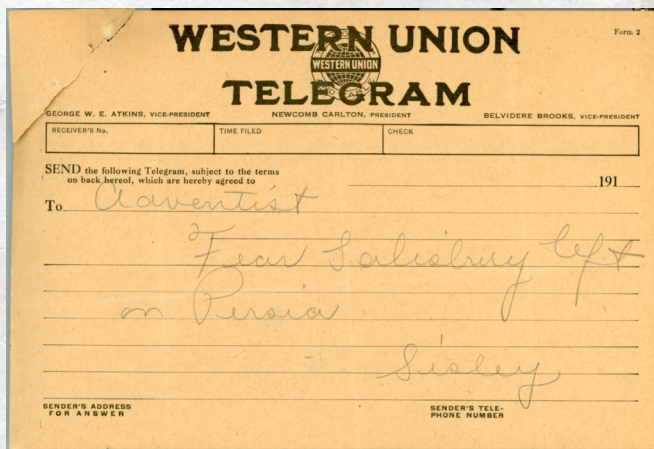 WESTERN UNION
WESTERN UNION
TELEGRAM
Form 2
GEORGE W. E. ATKINS, VICE-PRESIDENT NEWCOMB CARLTON, PRESIDENT BELVIDERE BROOKS, VICE-PRESIDENT
RECEIVER'S No. TIME FILED CHECK
SEND the following Telegram, subject to the terms
on back hereof, which are hereby agreed to 191
To Adventist
Fear Salisbury left
on Persia
Sisley
SENDER'S ADDRESS
FOR ANSWER
SENDER'S TELE-
PHONE NUMBER